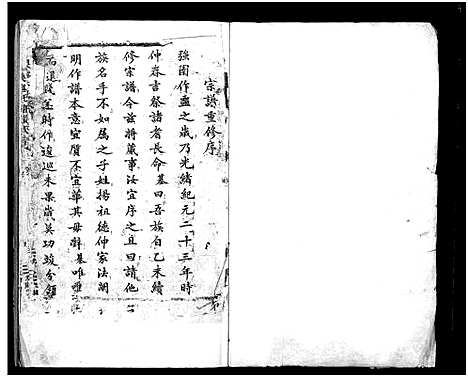 宗譜重修序
強圉作噩之歲乃光緒紀元二十三年時
仲春吉祭諸者長命基曰吾族自乙未續
修宗譜今茲將蕆事汝宜序之且曰請他
族名手不如属之子姓揚祖德仲家法闡
明作譜本意宜質不宜華其毋辭基唯唯
而退踐筵時作逡巡未果歲莫功竣分領